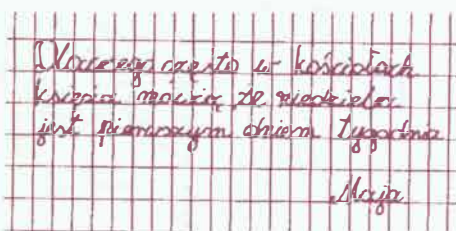 Dlaczego często w kościołach
księża mówią, że niedziela
jest pierwszym dniem tygodnia
Maja